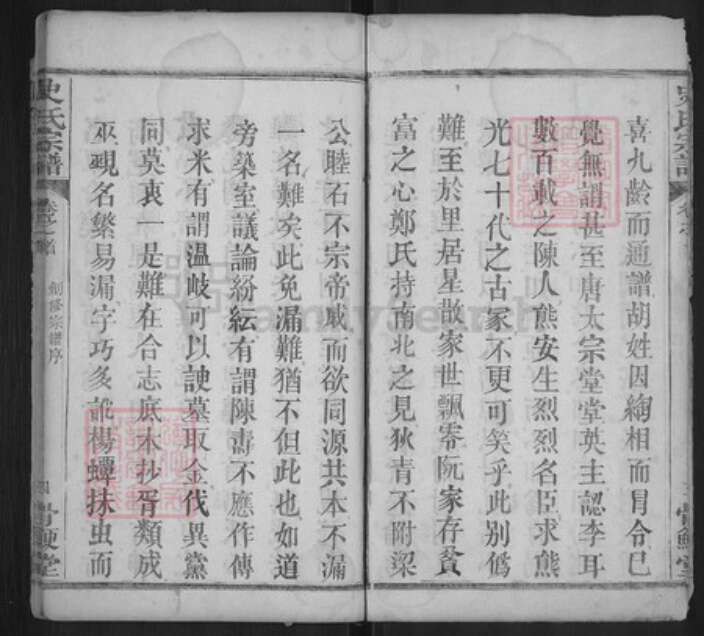 喜九齡而通譜胡姓因綯相而冒令已
覺無謂甚至唐太宗堂堂英主認李耳
數百載之陳人熊安生烈烈名臣求熊
光七十代之古冢不更可笑乎此別僞
難至於里居星散家世飄零阮家存貧
富之心鄭氏持南北之見狄青不附梁
公睦石不宗帝戚而欲同源共本不漏
一名難矣此免漏難猶不但此也如道
旁築室議論紛紜有謂陳壽不應作傳
求米有謂温岐可以諛墓取金伐異黨
同莫衷一是難在合志底本抄胥類成
巫覡名繁易漏字巧多訛楊蟫抹虫而
史氏宗譜
創修宗譜序
四
骨鯁堂
史氏宗譜
骨鯁堂
FamilySearch